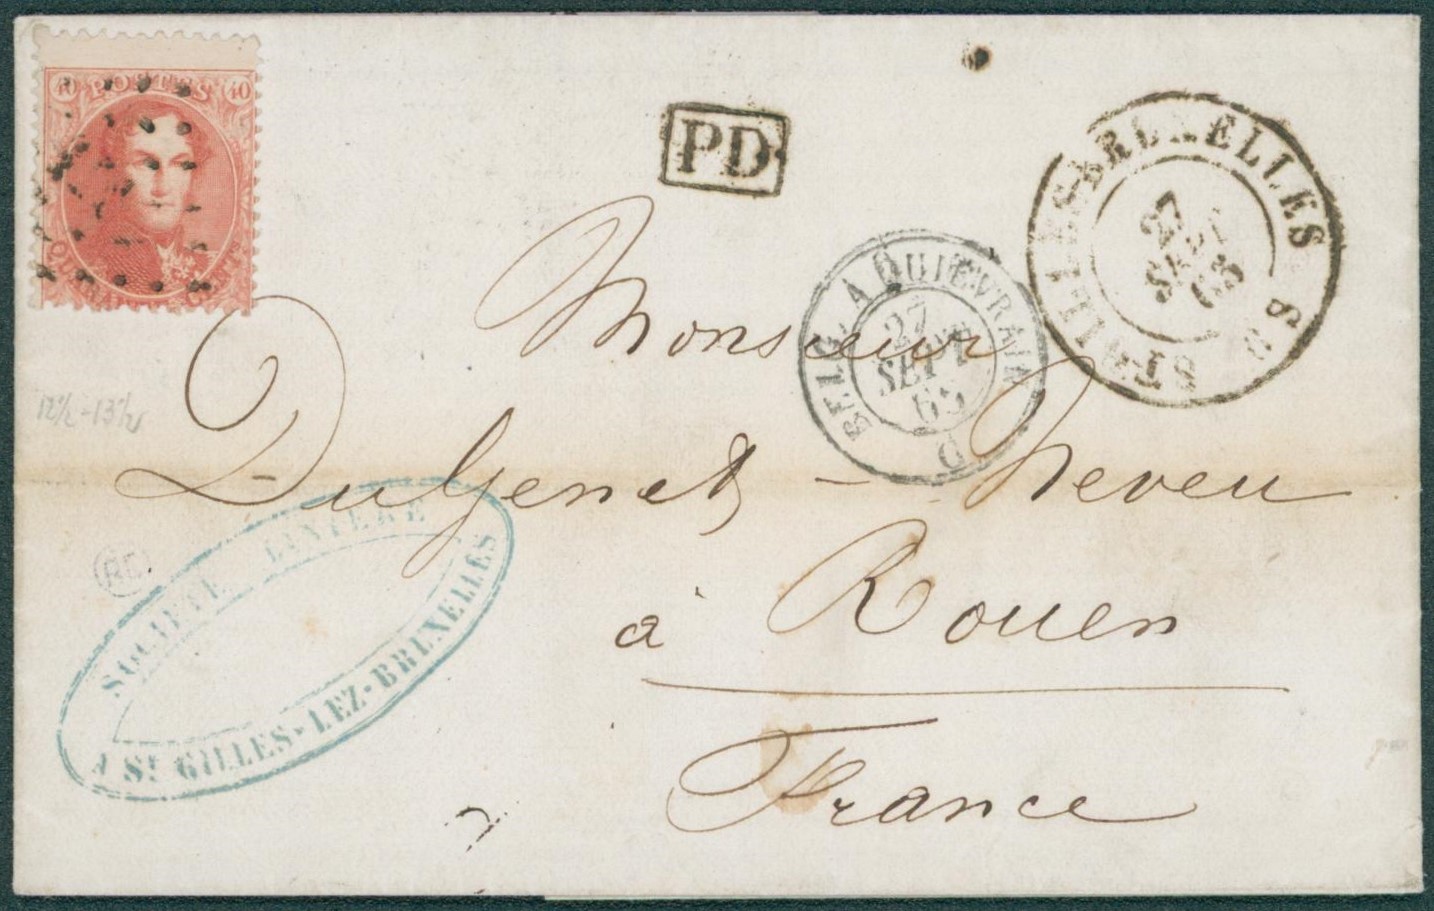 40 POSTES 40
QUARANTE CENTES
PD
ST GILLES-BRUXELLES
27
SEPT
65
BELG. A QUIÉVRAIN
27
SEPT
65
Monsieur
Dulgenet - Neveu
à Rouen
France
12½-13½
SOCIETE LINIERE
A ST GILLES-LEZ-BRUXELLES